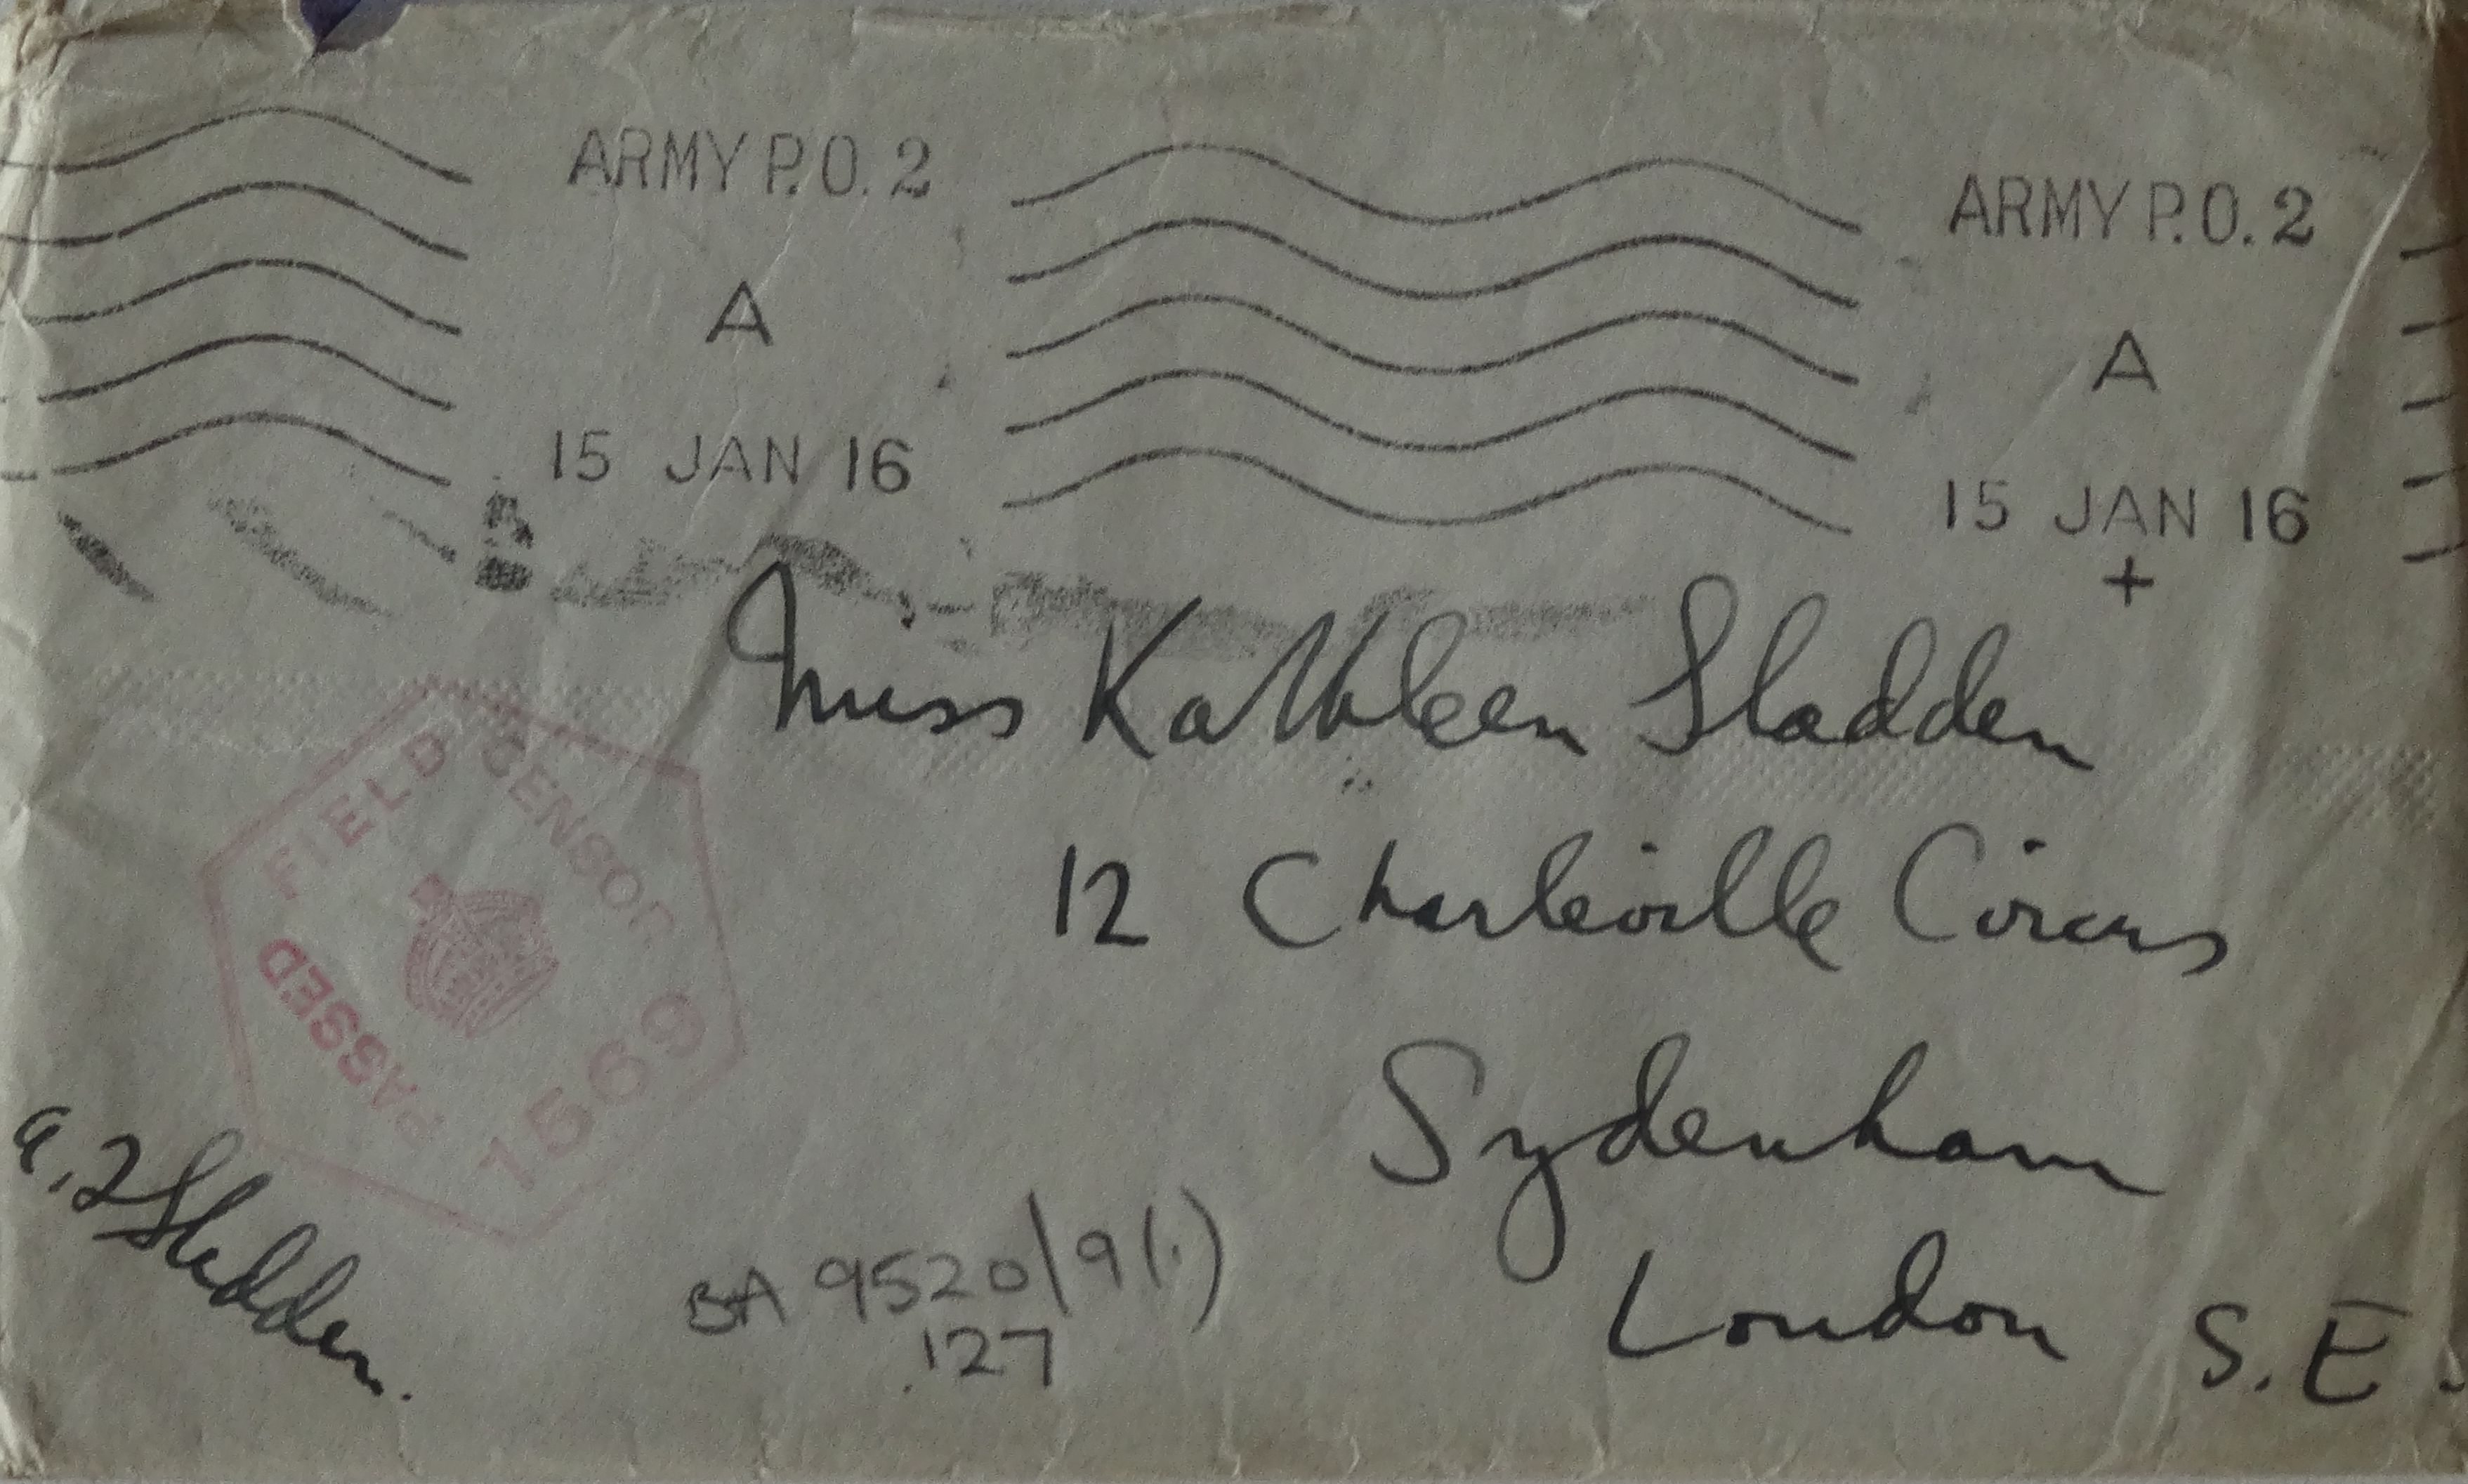 ARMY P.O. 2
A
15 JAN 16
ARMY P.O. 2
A
15 JAN 16
+
Miss Kathleen Sladden
12 Charleville Circus
Sydenham
London S.E.
FIELD CENSOR
PASSED
1569
Sladden.
BA 9520/9(1)
.127